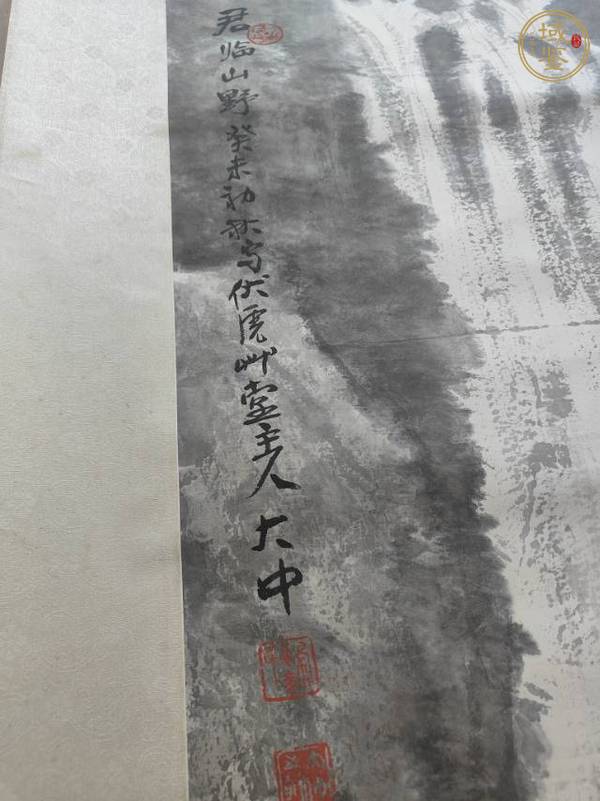 君临山野癸未初秋写伏虎艸堂主人大中
域鉴